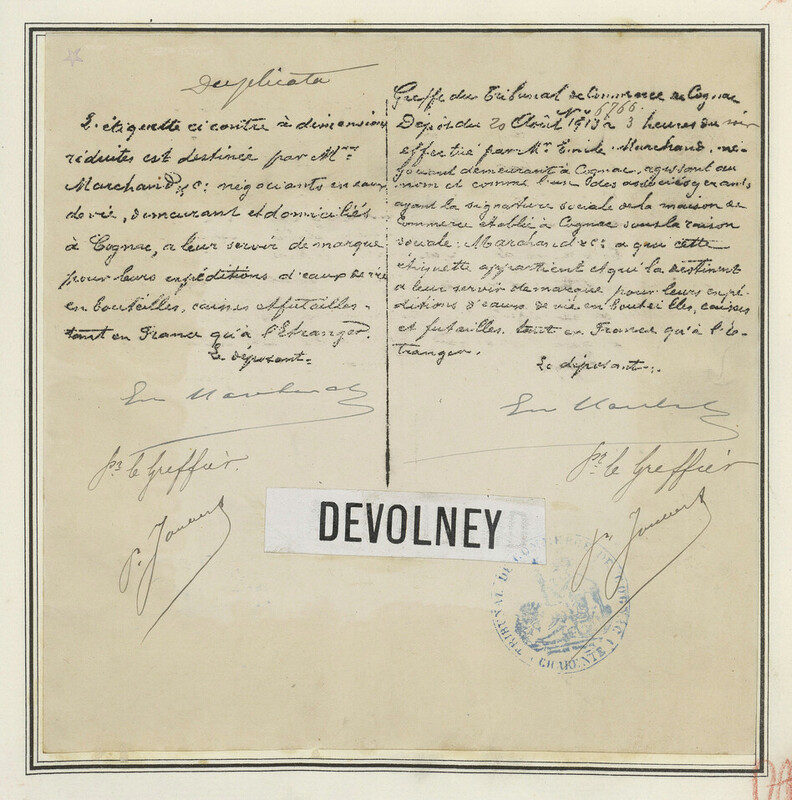 Duplicata
L'étiquette ci contre à dimensions
réduites est destinée par Mrs
Marchand & Co négociants en eaux
de vie, demeurant et domiciliés
à Cognac, a leur servir de marque
pour leurs expéditions d'eaux de vie
en bouteilles, caisses et futailles
tant en France qu'à l'Etranger.
Le déposant.
Em Marchand
Pr le Greffier.
P. Jouvert
Greffe du Tribunal de Commerce de Cognac
No 6766.
Dépôt du 20 Août 1913 à 3 heures du soir
effectué par Mr Emile Marchand, né-
gociant demeurant à Cognac, agissant au
nom et comme l'un des associés gérants
ayant la signature sociale de la maison de
Commerce établie à Cognac sous la raison
sociale: Marchand & Co a qui cette
étiquette appartient et qui la destinent
a leur servir de marque pour leurs expé-
ditions d'eaux de vie en bouteilles, caisses
et futailles tant en France qu'à l'é-
tranger.
Le déposant.
Em Marchand
Pr le Greffier
DEVOLNEY
TRIBUNAL DE COMMERCE DE COGNAC
CHARENTE